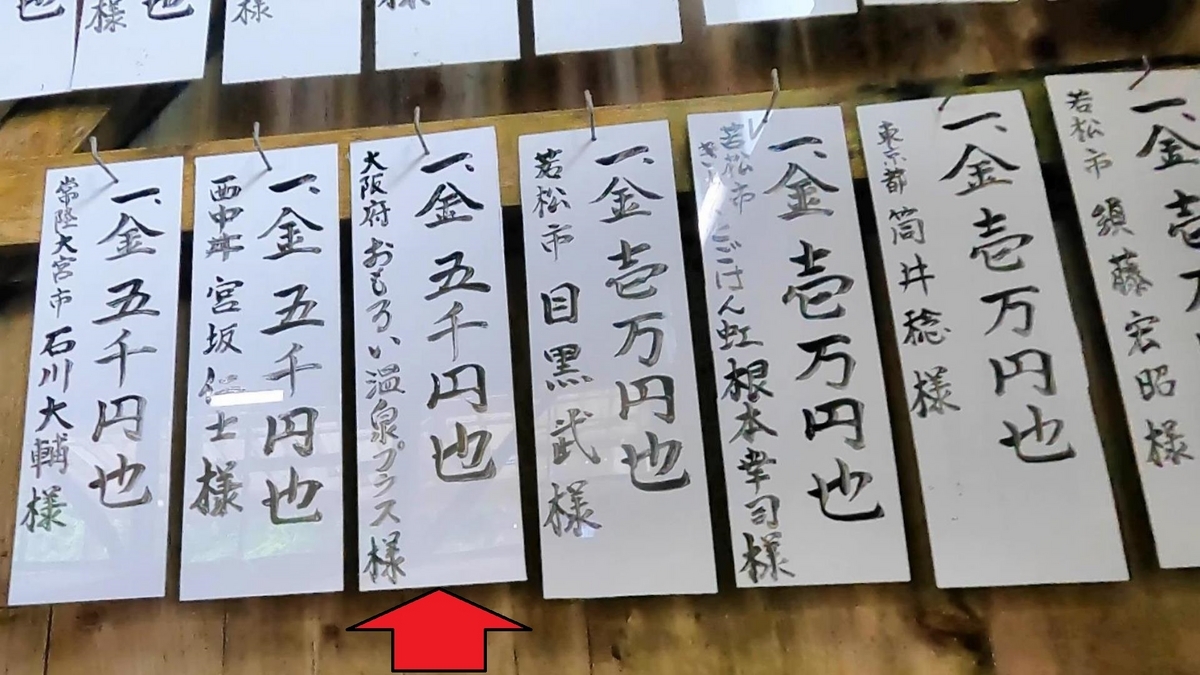 一、金壱
若松市 須藤宏昭様
一、金壱万円也
東京都 筒井稔様
一、金壱万円也
若松市 ごはん虹 根本幸司様
一、金壱万円也
若松市 目黒武様
一、金五千円也
大阪府 おもろい温泉プラス様
一、金五千円也
宮坂 士様
一、金五千円也
常陸大宮市 石川大輔様
様
様
様
也